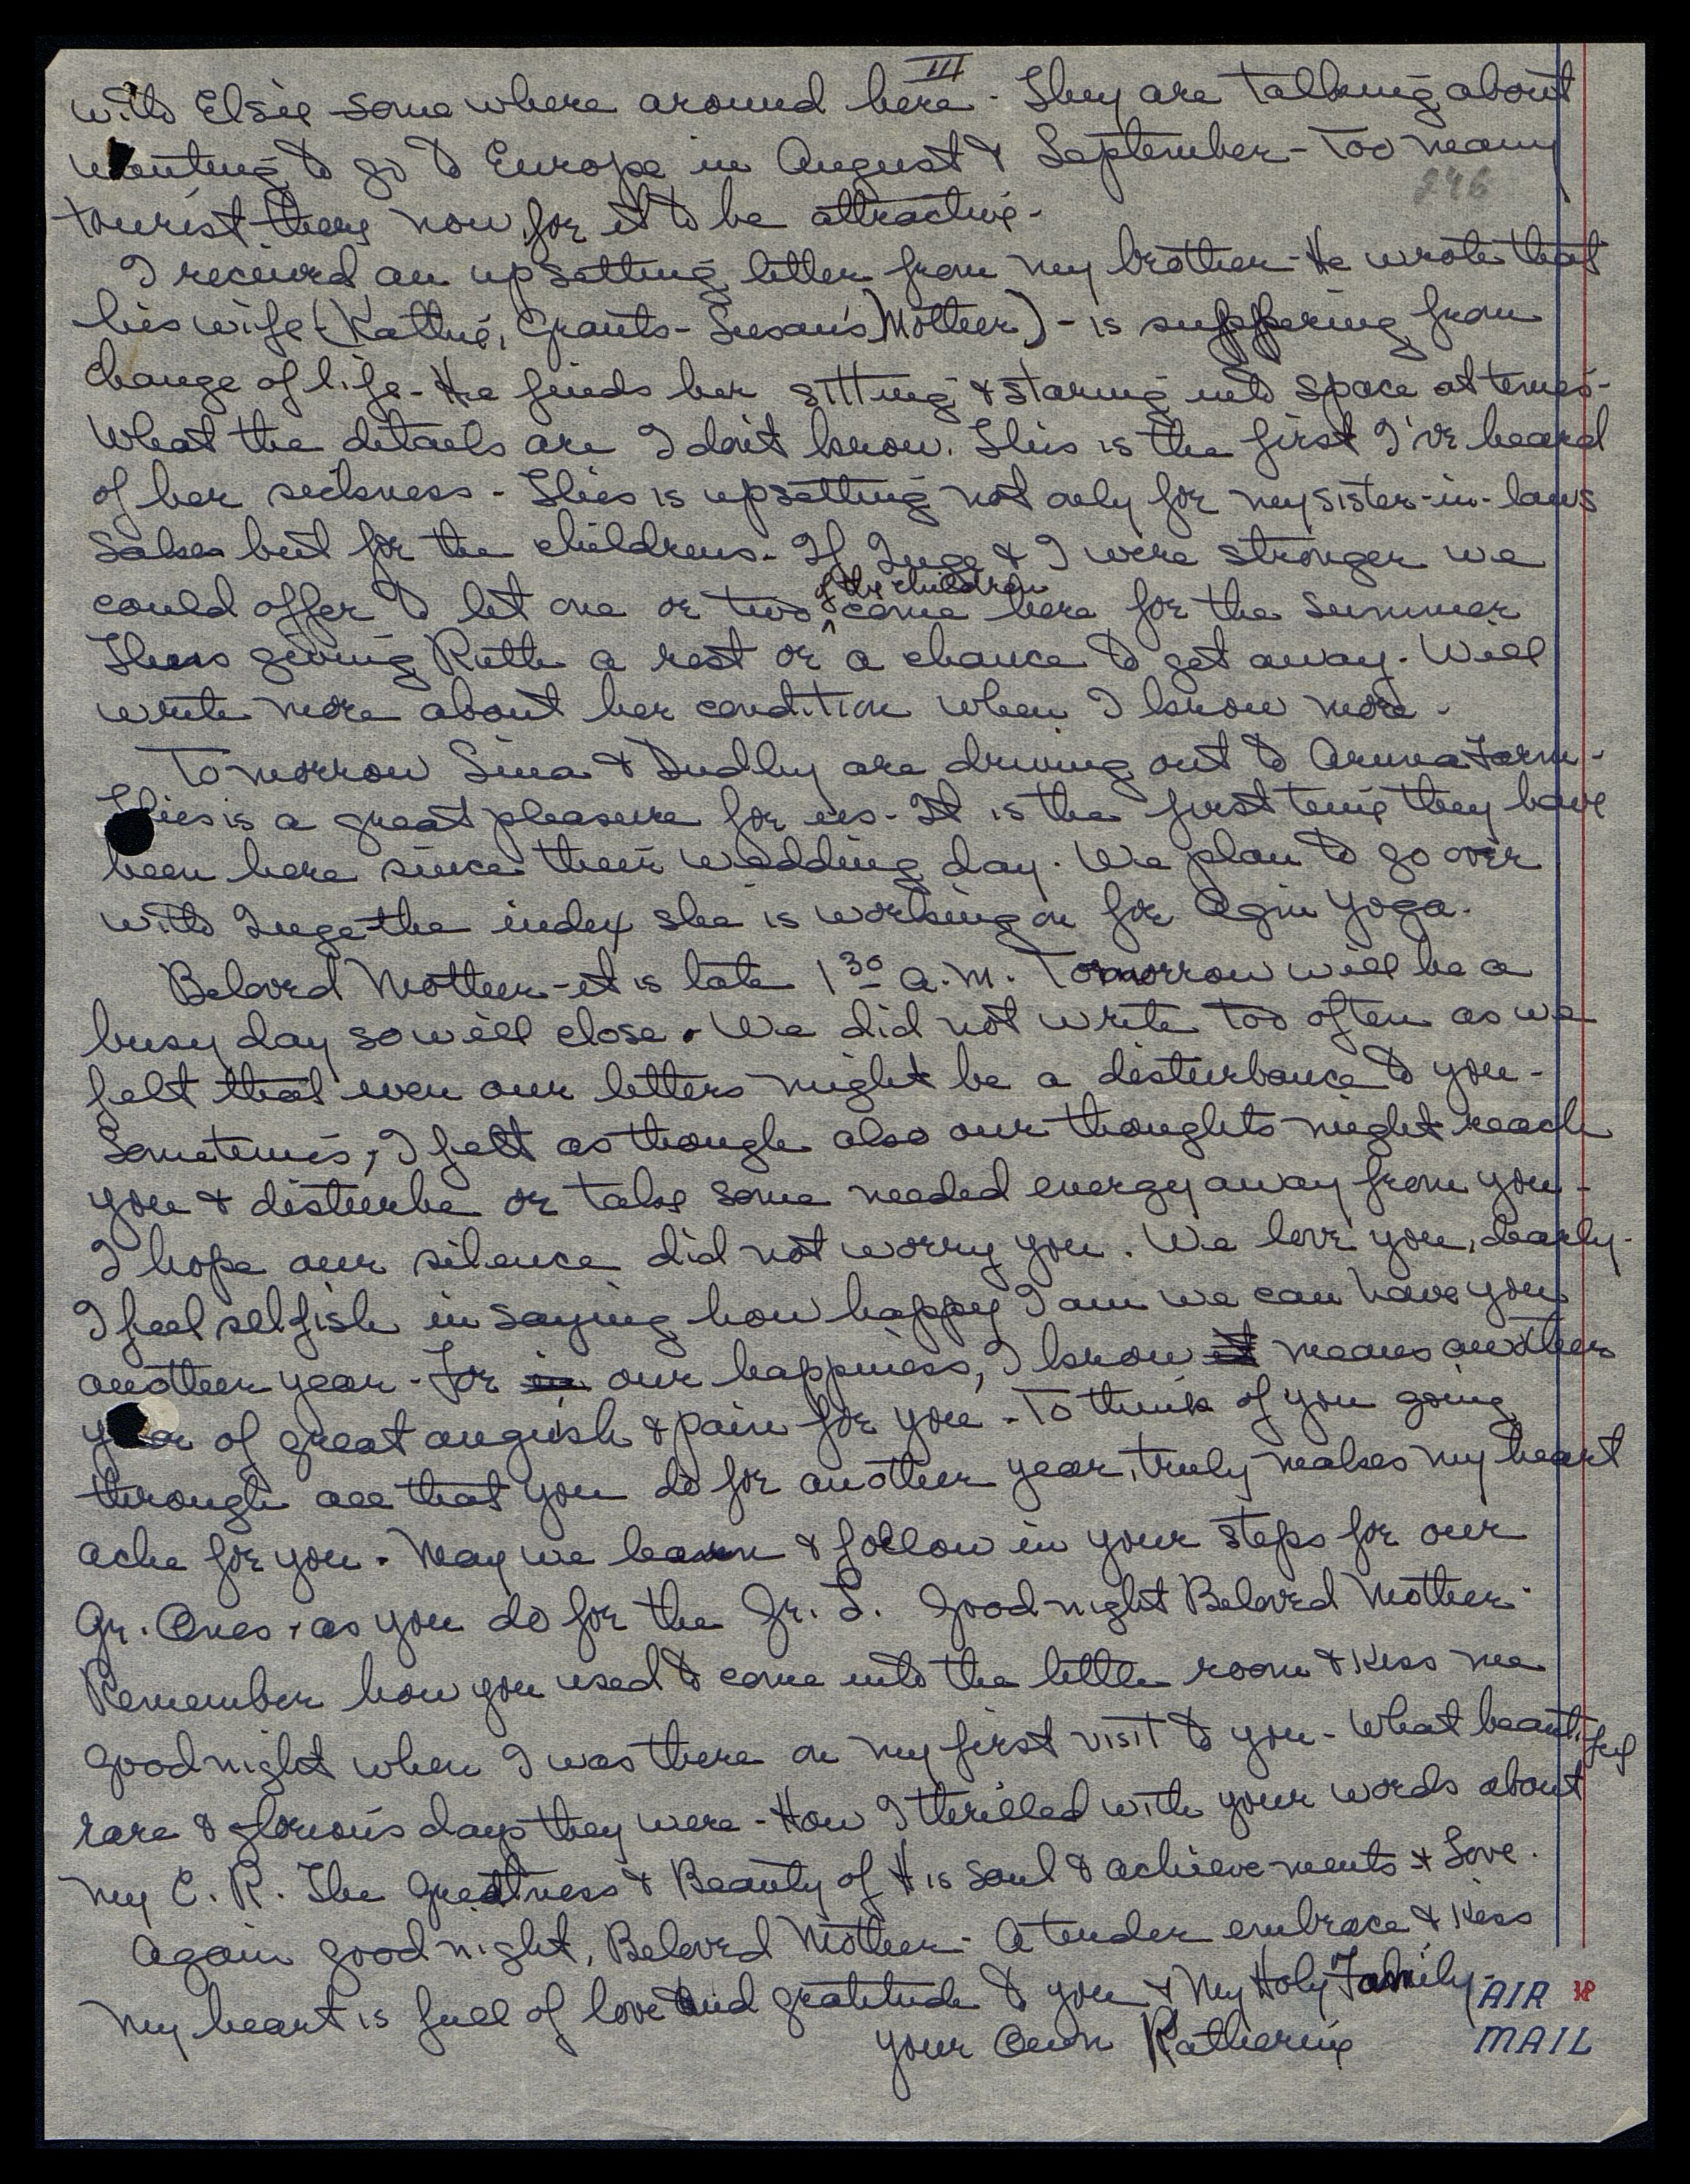 III
with Elsie somewhere around here - They are talking about
wanting to go to Europe in August & September - Too many
246
tourist there now, for it to be attractive -
I received an upsetting letter from my brother - He wrote that
his wife - (Grants - Susan's Mother) - is suffering from
change of life - He finds her sitting & staring into space at times -
What the details are I don't know. This is the first I've heard
of her sickness - This is upsetting not only for my sister-in-laws
sake but for the childrens - If Inge & I were stronger we
of the children
could offer to let one or two ^ come here for the summer
Thus giving Ruth a rest or a chance to get away. Will
write more about her condition when I know more -
Tomorrow Sina & Dudley are driving out to Aruna Farm -
This is a great pleasure for us - It is the first time they have
been here since their wedding day. We plan to go over
with Inge the index she is working on for Agni Yoga.
Beloved Mother - it is late 1 30 a.m. Tomorrow will be a
busy day so will close. We did not write too often as we
felt that even our letters might be a disturbance to you -
Sometimes, I felt as though also our thoughts might reach
you & disturbe or take some needed energy away from you -
I hope our silence did not worry you. We love you, dearly -
I feel selfish in saying how happy I am we can have you
another year - For our happiness, I know it means another
year of great anguish & pain for you - To think of you going
through all that you do for another year, truly makes my heart
ache for you. May we learn & follow in your steps for our
Gr. Ones, as you do for the Gr. L. Good night Beloved Mother -
Remember how you used to come into the little room & kiss me
good night when I was there on my first visit to you - What beautiful
rare & glorious days they were - How I thrilled with your words about
my C. R. The Greatness & Beauty of His soul & achievements & Love.
Again good night, Beloved Mother - A tender embrace & kiss
My heart is full of love and gratitude to you & My Holy Family -
Your Own Katherine
AIR
MAIL